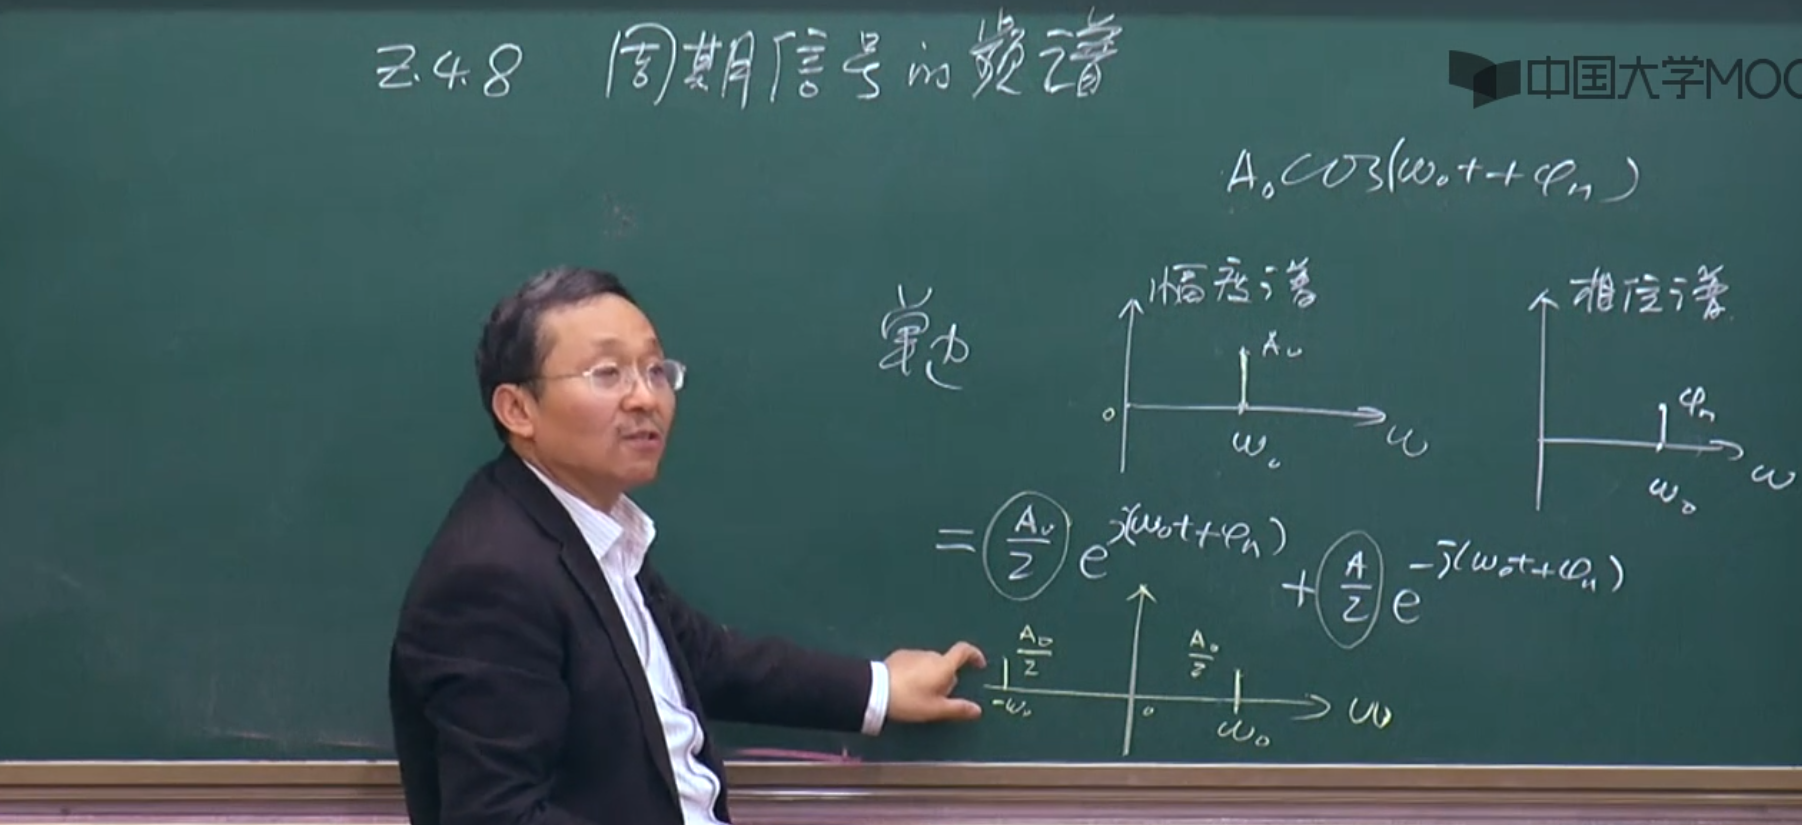 Z.4.8 周期信号的频谱
中国大学MOO
A₀cos(ω₀t+φₙ)
单边
幅度谱
A₀
0
ω₀
ω
相位谱
φₙ
ω₀
ω
= A₀/2 e^{j(ω₀t+φₙ)} + A/2 e^{-j(ω₀t+φₙ)}
A₀/2
A₀/2
-ω₀
0
ω₀
ω